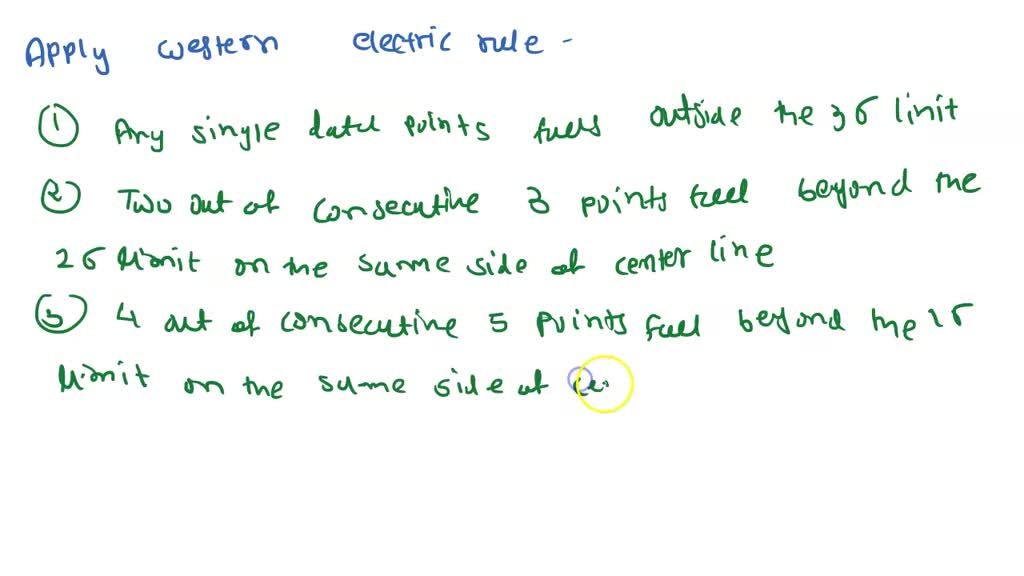 Apply western electric rule -
① Any single data points falls outside the 3σ limit
② Two out of consecutive 3 points fall beyond the
2σ limit on the same side of center line
③ 4 out of consecutive 5 points fall beyond the 1σ
limit on the same side of ce